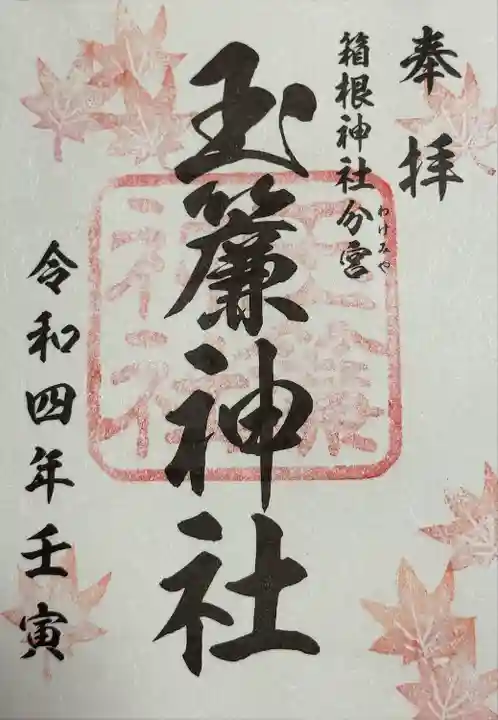 奉拝
箱根神社分宮
わけみや
玉簾神社
玉簾神社
令和四年壬寅